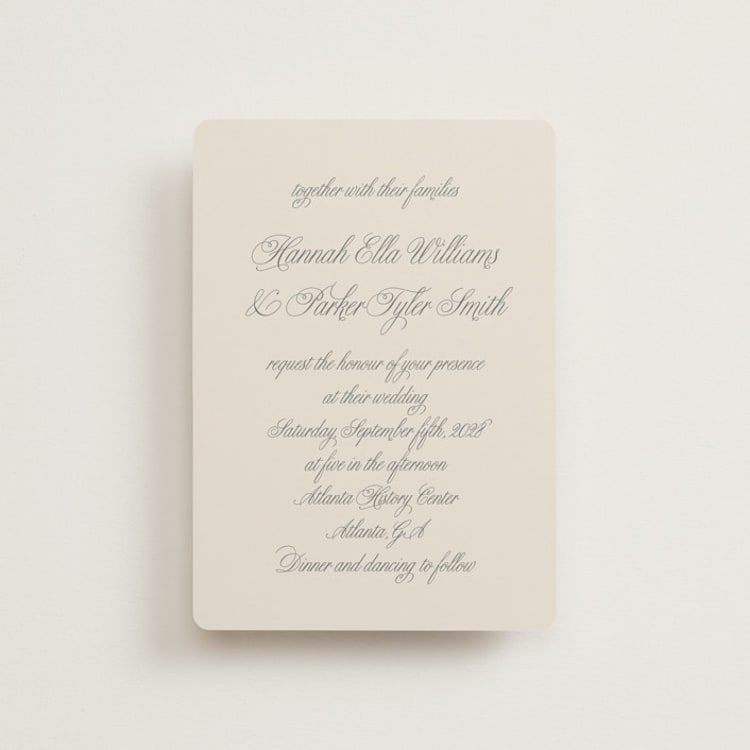 together with their families
Hannah Ella Williams
& Parker Tyler Smith
request the honour of your presence
at their wedding
Saturday, September fifth, 2028
at five in the afternoon
Atlanta History Center
Atlanta, GA
Dinner and dancing to follow